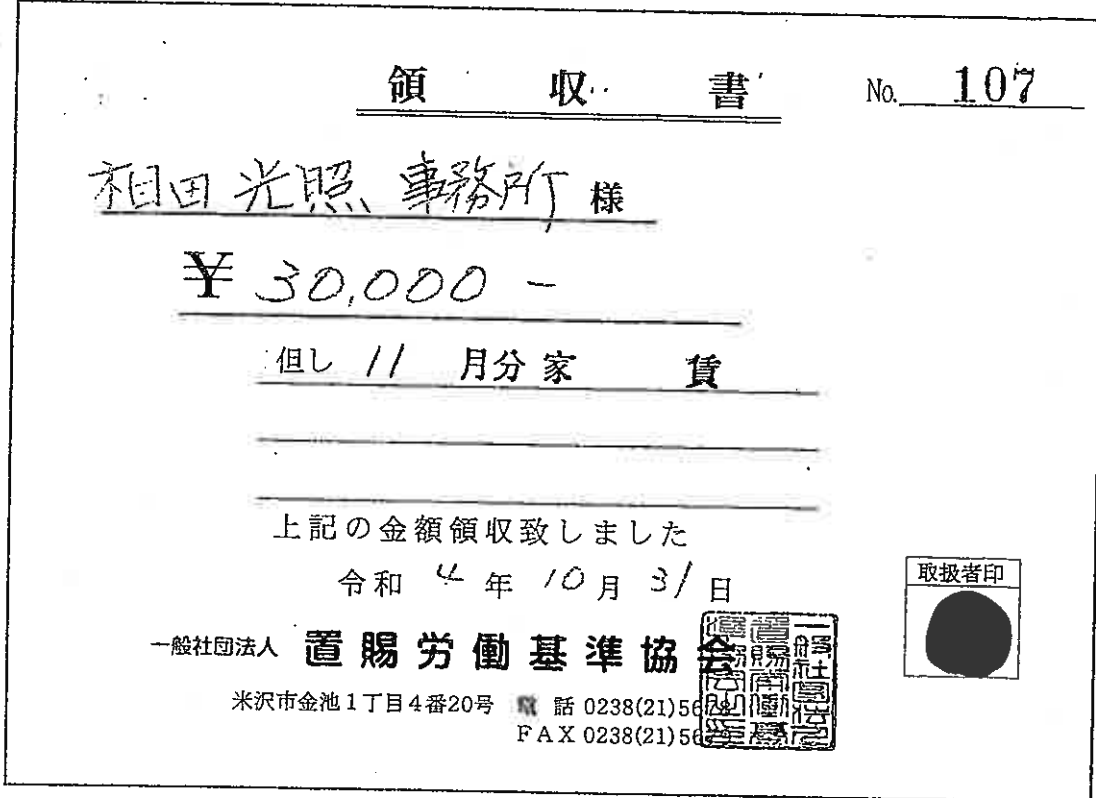 領収書 No. 107
相田光照事務所 様
¥ 30,000 -
但し 11 月分家賃
上記の金額領収致しました
令和 4 年 10 月 31 日
取扱者印
一般社団法人 置賜労働基準協会
米沢市金池1丁目4番20号 電話 0238(21)5678
FAX 0238(21)56